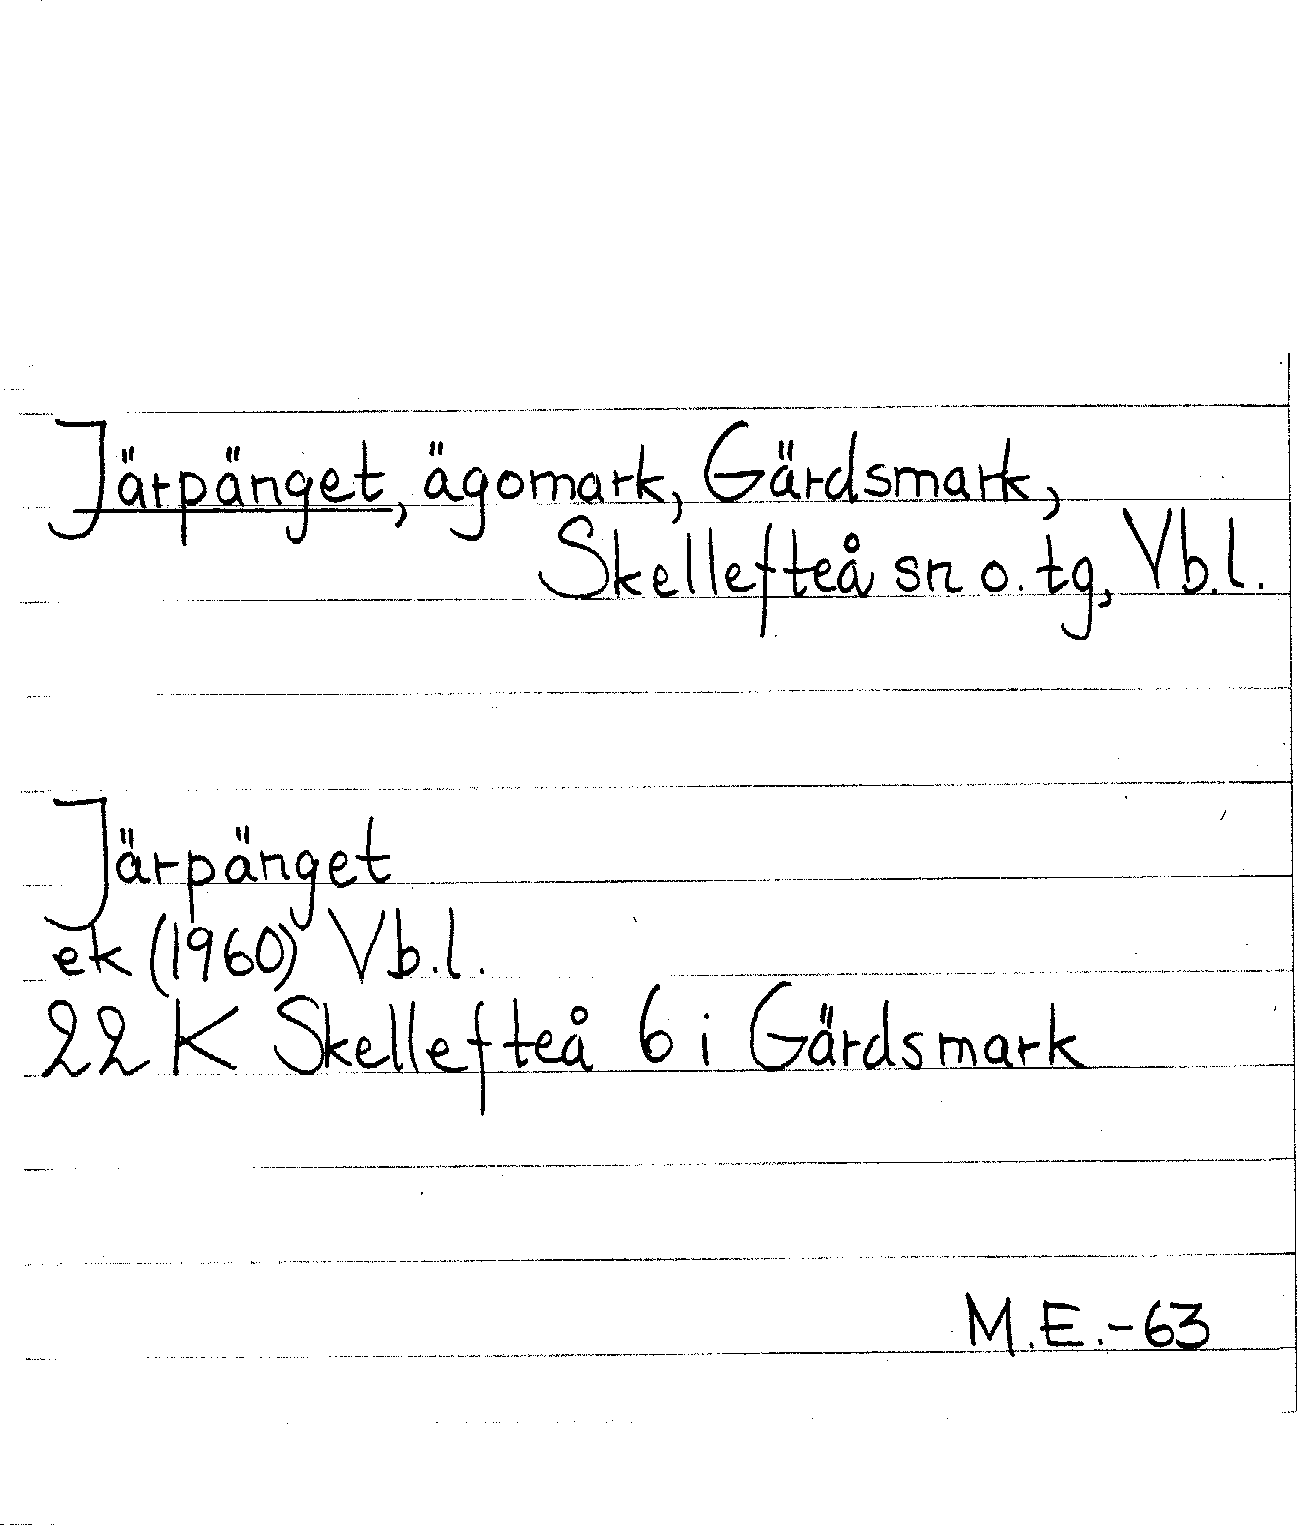 Järpänget, ägomark, Gärdsmark,
Skellefteå sn o. tg, Vb.l.
Järpänget
ek (1960) Vb.l.
22 K Skellefteå 6 i Gärdsmark
M.E.-63